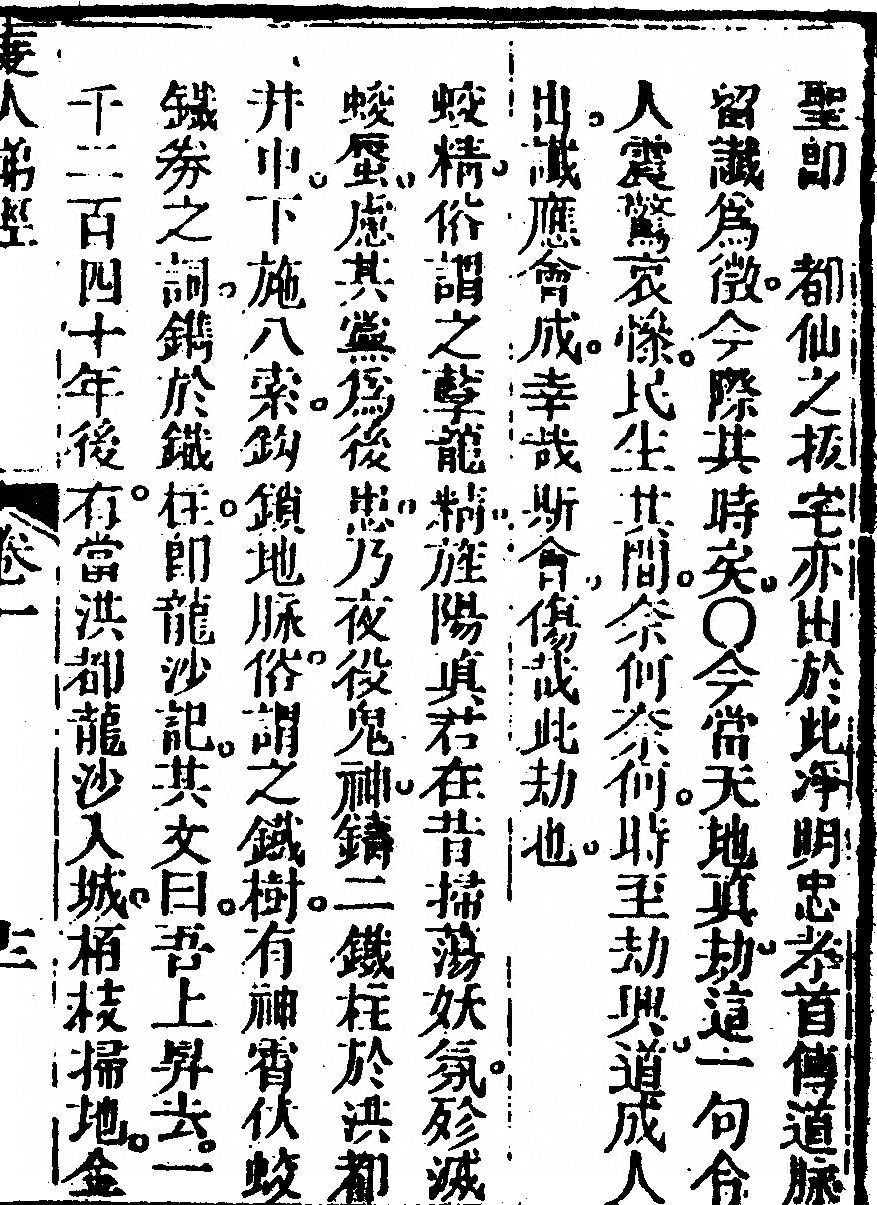 聖卽　都仙之拔宅亦由於此凈明忠孝首傳道脉
留讖爲徵。今際其時矣。〇今當天地眞劫。這一句合
人震驚哀慘。民生其間。奈何奈何。時至劫興。道成人
出。讖應會成。幸哉斯會。傷哉此劫也。
蛟精。俗謂之孽龍精。旌陽眞君在昔掃蕩妖氛。殄滅
蛟蜃。慮其黨爲後患。乃夜役鬼神。鑄二鐵柱於洪都
井中。下施八索。鈎鎖地脉。俗謂之鐵樹。有神霄伏蛟
鐵劵之詞。鐫於鐵柱。卽龍沙記。其文曰。吾上昇去。一
千二百四十年後。有當洪都龍沙入城。栢枝掃地。金
度人第壂
卷一